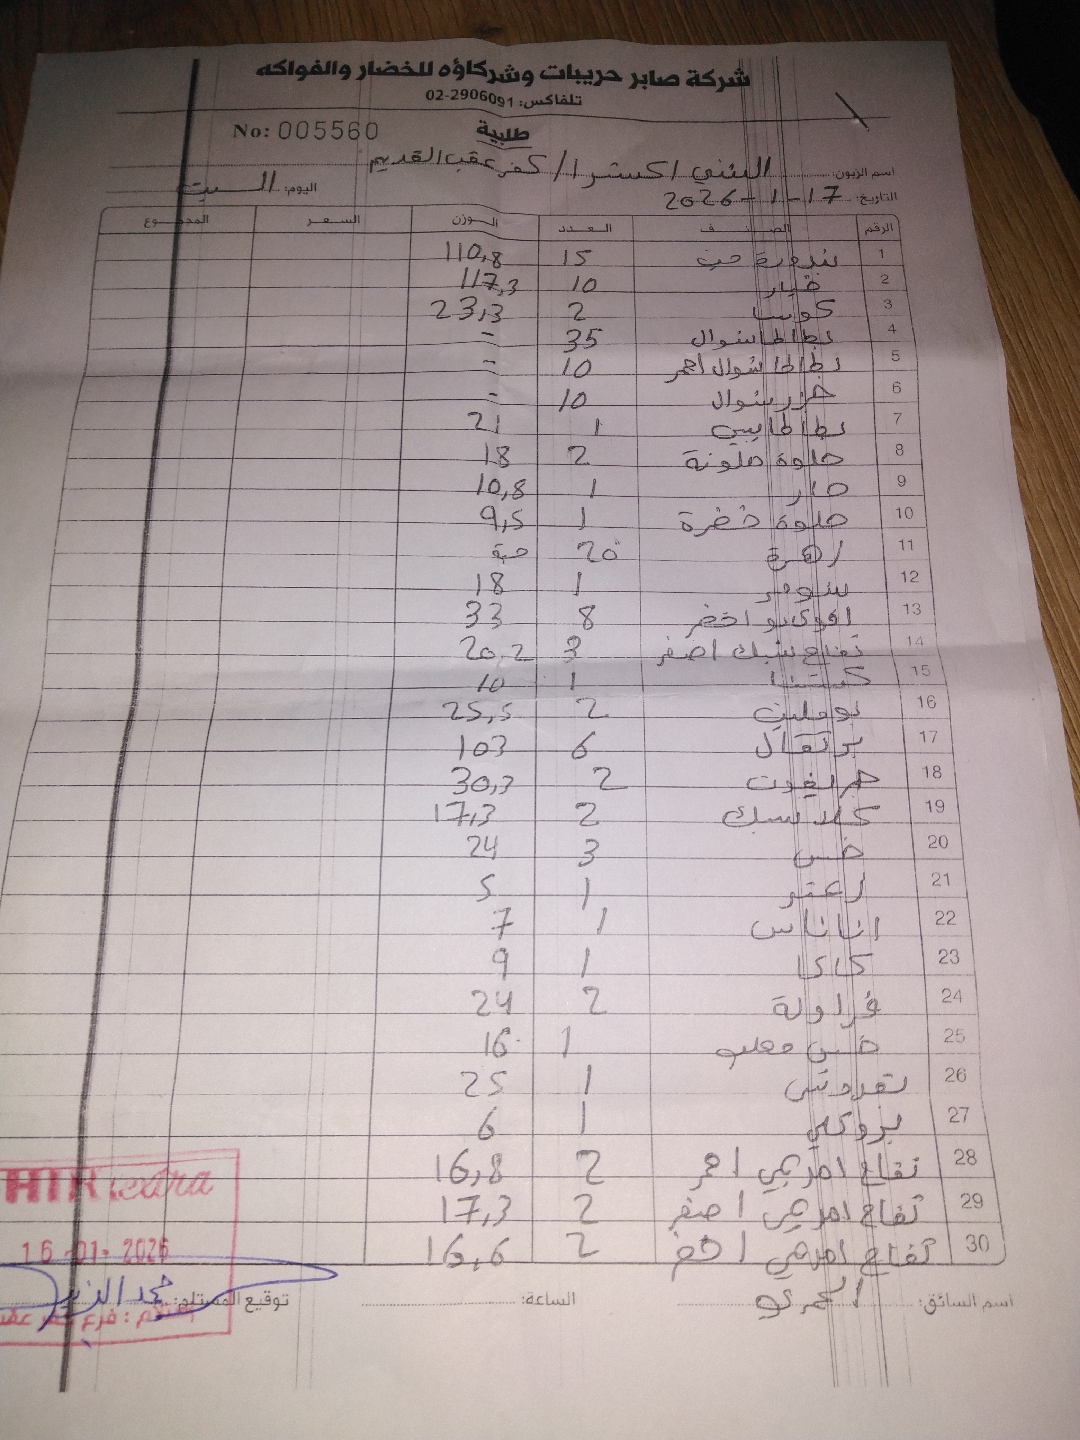 شركة صابر حريبات وشركاؤه للخضار والفواكه
تلفاكس: 02-2906091
No: 005560
طلبية
اسم الزبون: الثني اكسترا / كفر عقب القديم
اليوم: السبت
التاريخ: 17-1-2026
الرقم الصنف العدد الوزن السعر المجموع
1 بندورة حب 15 110,8
2 خيار 10 117,3
3 كوسا 2 23,3
4 بطاطا شوال 35 -
5 بطاطا شوال احمر 10 -
6 جزر شوال 10 -
7 بطاطا بيبي 1 21
8 حلوة ملونة 2 18
9 حار 1 10,8
10 حلوة خضرة 1 9,5
11 زهرة 20 حبة
12 شومر 1 18
13 افوكادو اخضر 8 33
14 تفاح شبك اصفر 3 20,2
15 كستنا 1 10
16 بوملي 2 25,5
17 برتقال 6 103
18 جريفوت 2 30,3
19 2 17,3
20 خس 3 24
21 زعتر 1 5
22 اناناس 1 7
23 كاكا 1 9
24 فراولة 2 24
25 خس معلب 1 16
26 بقدونس 1 25
27 بروكلي 1 6
28 تفاح امريكي احمر 2 16,8
29 تفاح امريكي اصفر 2 17,3
30 تفاح امريكي اخضر 2 16,6
extra
16-01-2026
اسم السائق: العمري
الساعة:
توقيع المستلم: محمد